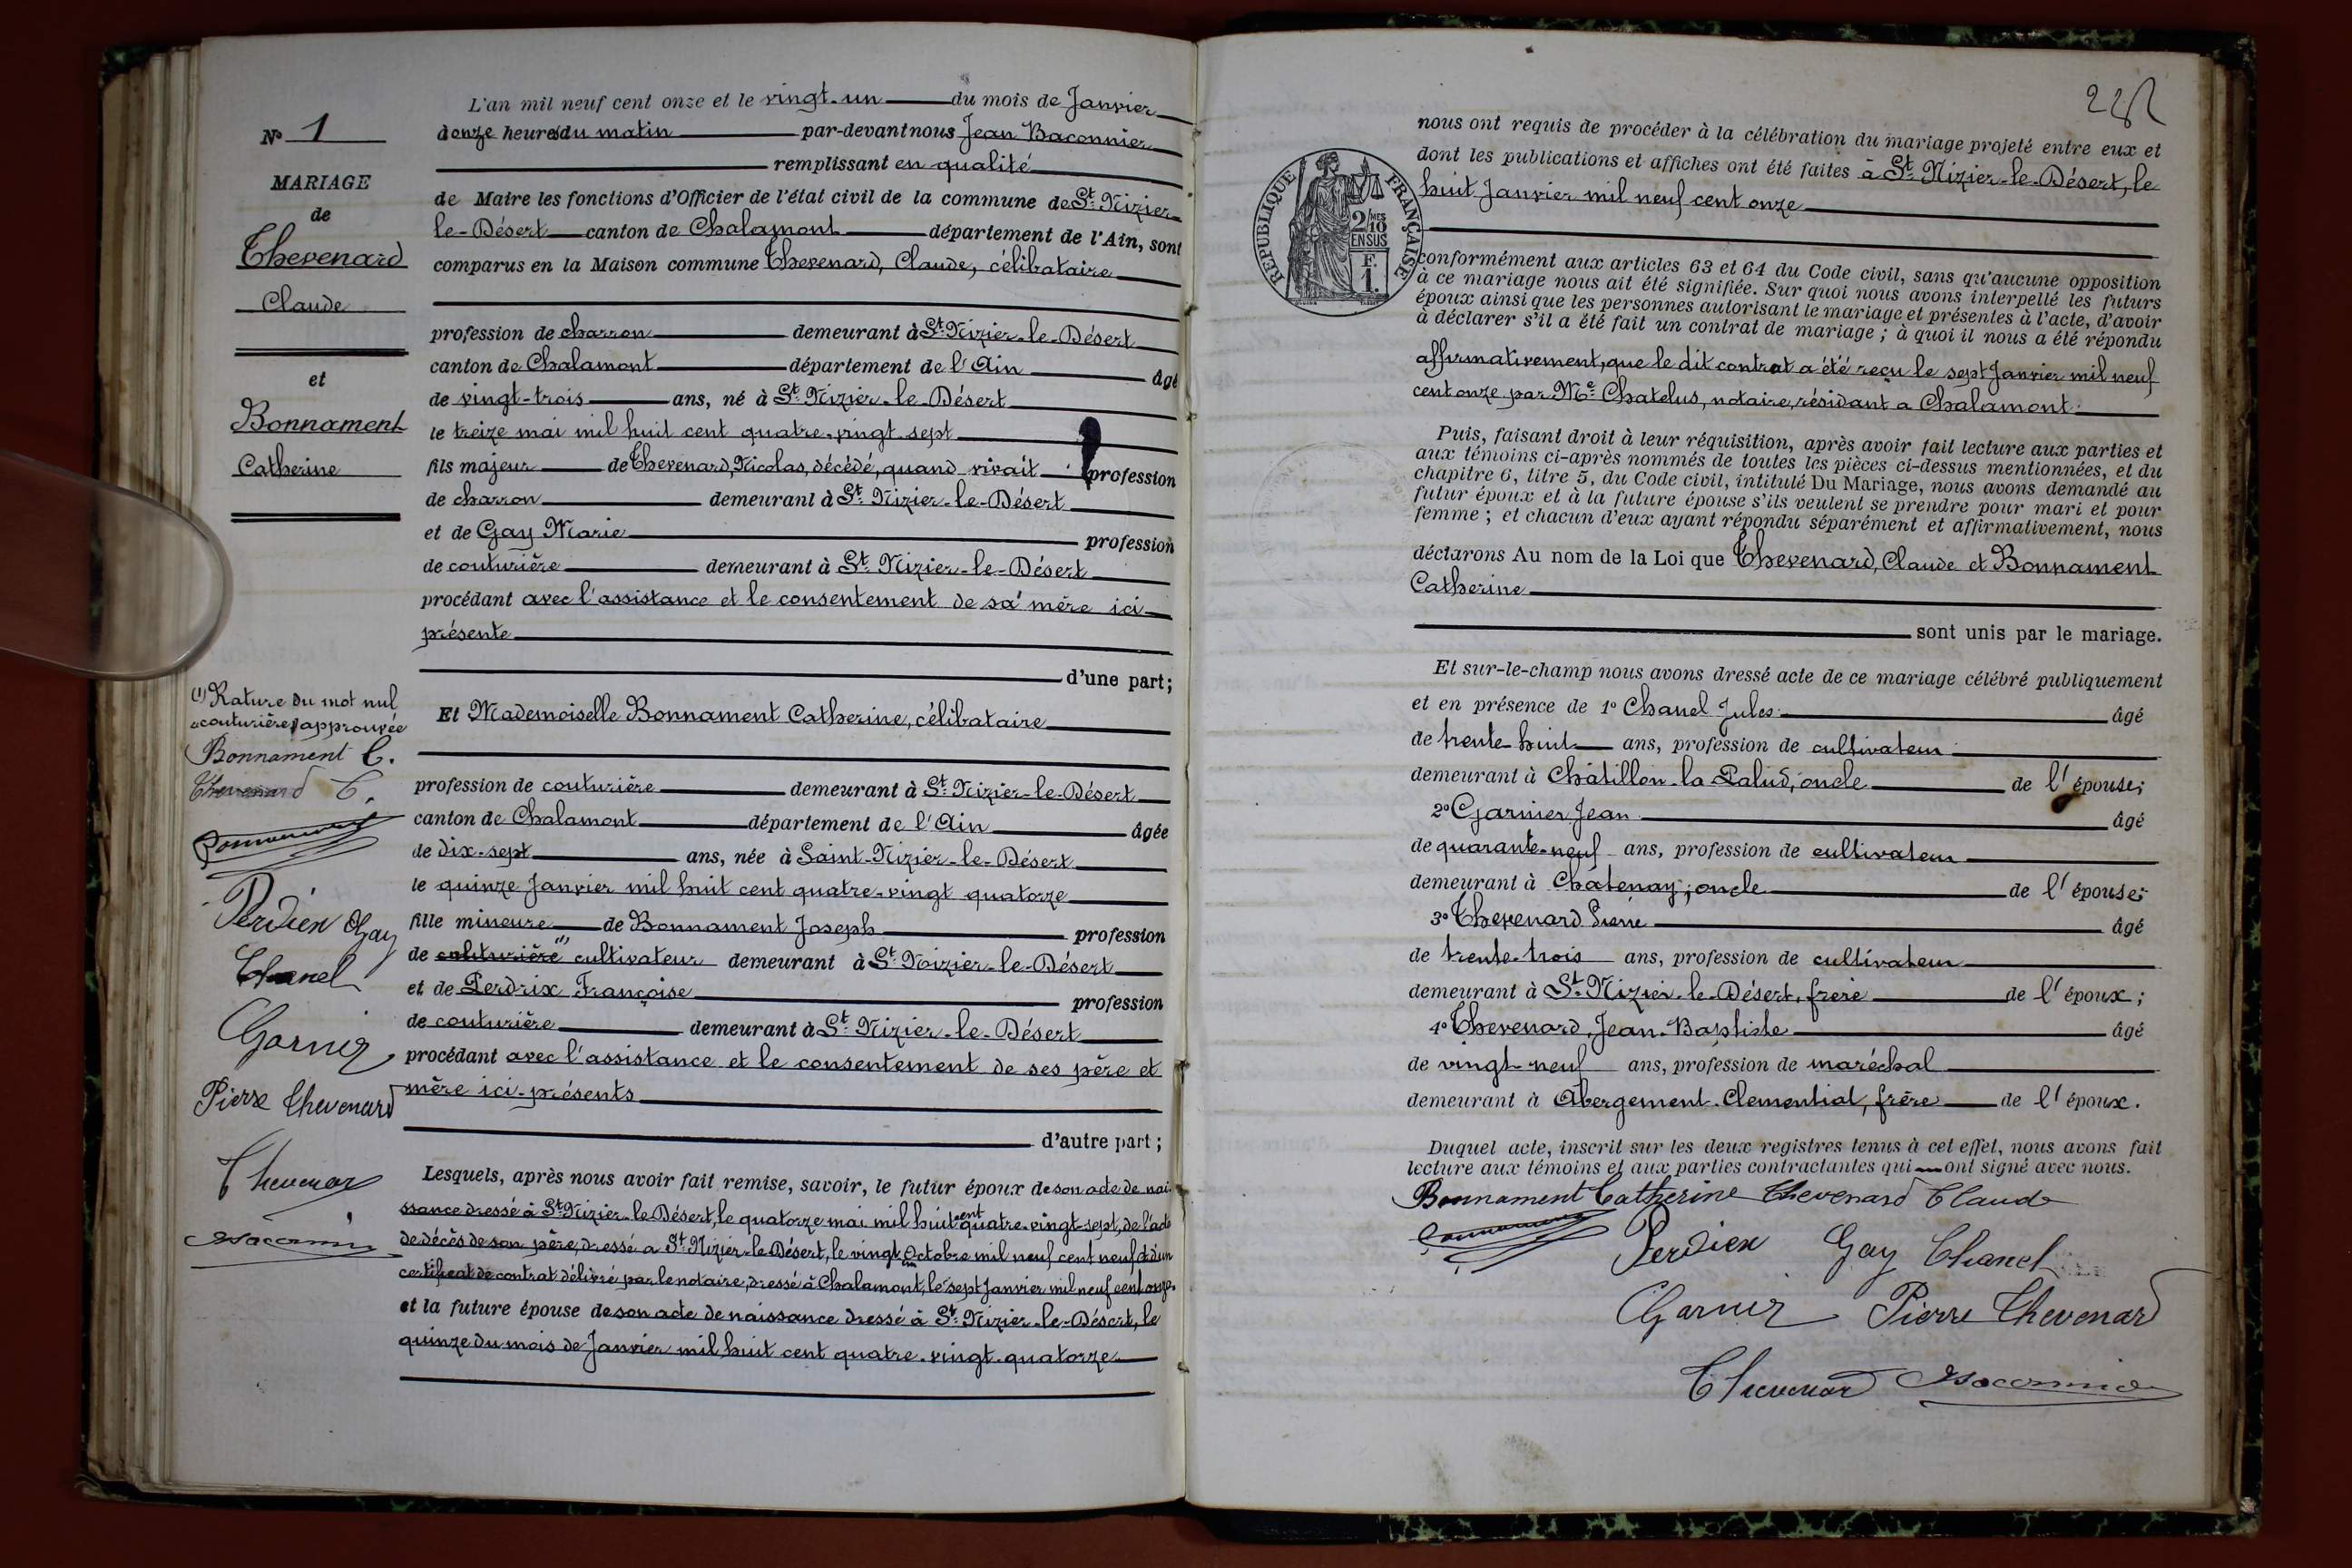 N° 1
MARIAGE
de
Thevenard
Claude
et
Bonnament
Catherine
(1) Rature du mot nul
"couturière" approuvée
Bonnament C.
Thevenard C.
Bonnament
Perdrix Gay
Chanel
Garnier
Pierre Thevenard
Thevenard
Baconnier
L'an mil neuf cent onze et le vingt-un du mois de Janvier
à onze heures du matin par-devant nous Jean Baconnier
remplissant en qualité
de Maire les fonctions d'Officier de l'état civil de la commune de St. Nizier-
le-Désert canton de Chalamont département de l'Ain, sont
comparus en la Maison commune Thevenard, Claude, célibataire
profession de charron demeurant à St. Nizier-le-Désert
canton de Chalamont département de l'Ain âgé
de vingt-trois ans, né à St. Nizier-le-Désert
le treize mai mil huit cent quatre-vingt sept
fils majeur de Thevenard, Nicolas, décédé, quand vivait profession
de charron demeurant à St. Nizier-le-Désert
et de Gay Marie profession
de couturière demeurant à St. Nizier-le-Désert
procédant avec l'assistance et le consentement de sa mère ici-
présente
d'une part;
Et Mademoiselle Bonnament Catherine, célibataire
profession de couturière demeurant à St. Nizier-le-Désert
canton de Chalamont département de l'Ain âgée
de dix-sept ans, née à Saint-Nizier-le-Désert
le quinze Janvier mil huit cent quatre-vingt quatorze
fille mineure de Bonnament Joseph profession
de couturière (1) cultivateur demeurant à St. Nizier-le-Désert
et de Perdrix Françoise profession
de couturière demeurant à St. Nizier-le-Désert
procédant avec l'assistance et le consentement de ses père et
mère ici-présents
d'autre part;
Lesquels, après nous avoir fait remise, savoir, le futur époux de son acte de nai-
ssance dressé à St. Nizier-le-Désert, le quatorze mai mil huit cent quatre-vingt-sept, de l'acte
de décès de son père, dressé a St. Nizier-le-Désert, le vingt un Octobre mil neuf cent neuf et d'un
certificat de contrat délivré par le notaire, dressé à Chalamont, le sept Janvier mil neuf cent onze.
et la future épouse de son acte de naissance dressé à St. Nizier-le-Désert, le
quinze du mois de Janvier mil huit cent quatre-vingt-quatorze
RÉPUBLIQUE FRANÇAISE
2/10 MES
EN SUS
F.
1.
nous ont requis de procéder à la célébration du mariage projeté entre eux et
dont les publications et affiches ont été faites à St. Nizier-le-Désert, le
huit Janvier mil neuf cent onze
conformément aux articles 63 et 64 du Code civil, sans qu'aucune opposition
à ce mariage nous ait été signifiée. Sur quoi nous avons interpellé les futurs
époux ainsi que les personnes autorisant le mariage et présentes à l'acte, d'avoir
à déclarer s'il a été fait un contrat de mariage; à quoi il nous a été répondu
affirmativement, que le dit contrat a été reçu le sept Janvier mil neuf
cent onze par Me Chatelus, notaire, résidant a Chalamont.
Puis, faisant droit à leur réquisition, après avoir fait lecture aux parties et
aux témoins ci-après nommés de toutes les pièces ci-dessus mentionnées, et du
chapitre 6, titre 5, du Code civil, intitulé Du Mariage, nous avons demandé au
futur époux et à la future épouse s'ils veulent se prendre pour mari et pour
femme; et chacun d'eux ayant répondu séparément et affirmativement, nous
déclarons Au nom de la Loi que Thevenard, Claude et Bonnament
Catherine
sont unis par le mariage.
Et sur-le-champ nous avons dressé acte de ce mariage célébré publiquement
et en présence de 1° Chanel Jules âgé
de trente-huit ans, profession de cultivateur
demeurant à Châtillon-la-Palud, oncle de l'épouse;
2° Garnier Jean âgé
de quarante-neuf ans, profession de cultivateur
demeurant à Châtenay, oncle de l'épouse;
3° Thevenard Pierre âgé
de trente-trois ans, profession de cultivateur
demeurant à St. Nizier-le-Désert, frère de l'époux;
4° Thevenard, Jean-Baptiste âgé
de vingt-neuf ans, profession de maréchal
demeurant à Abergement-Clementiat, frère de l'époux.
Duquel acte, inscrit sur les deux registres tenus à cet effet, nous avons fait
lecture aux témoins et aux parties contractantes qui ont signé avec nous.
Bonnament Catherine Thevenard Claude
Bonnament Perdrix Gay Chanel
Garnier Pierre Thevenard
Thevenard Baconnier